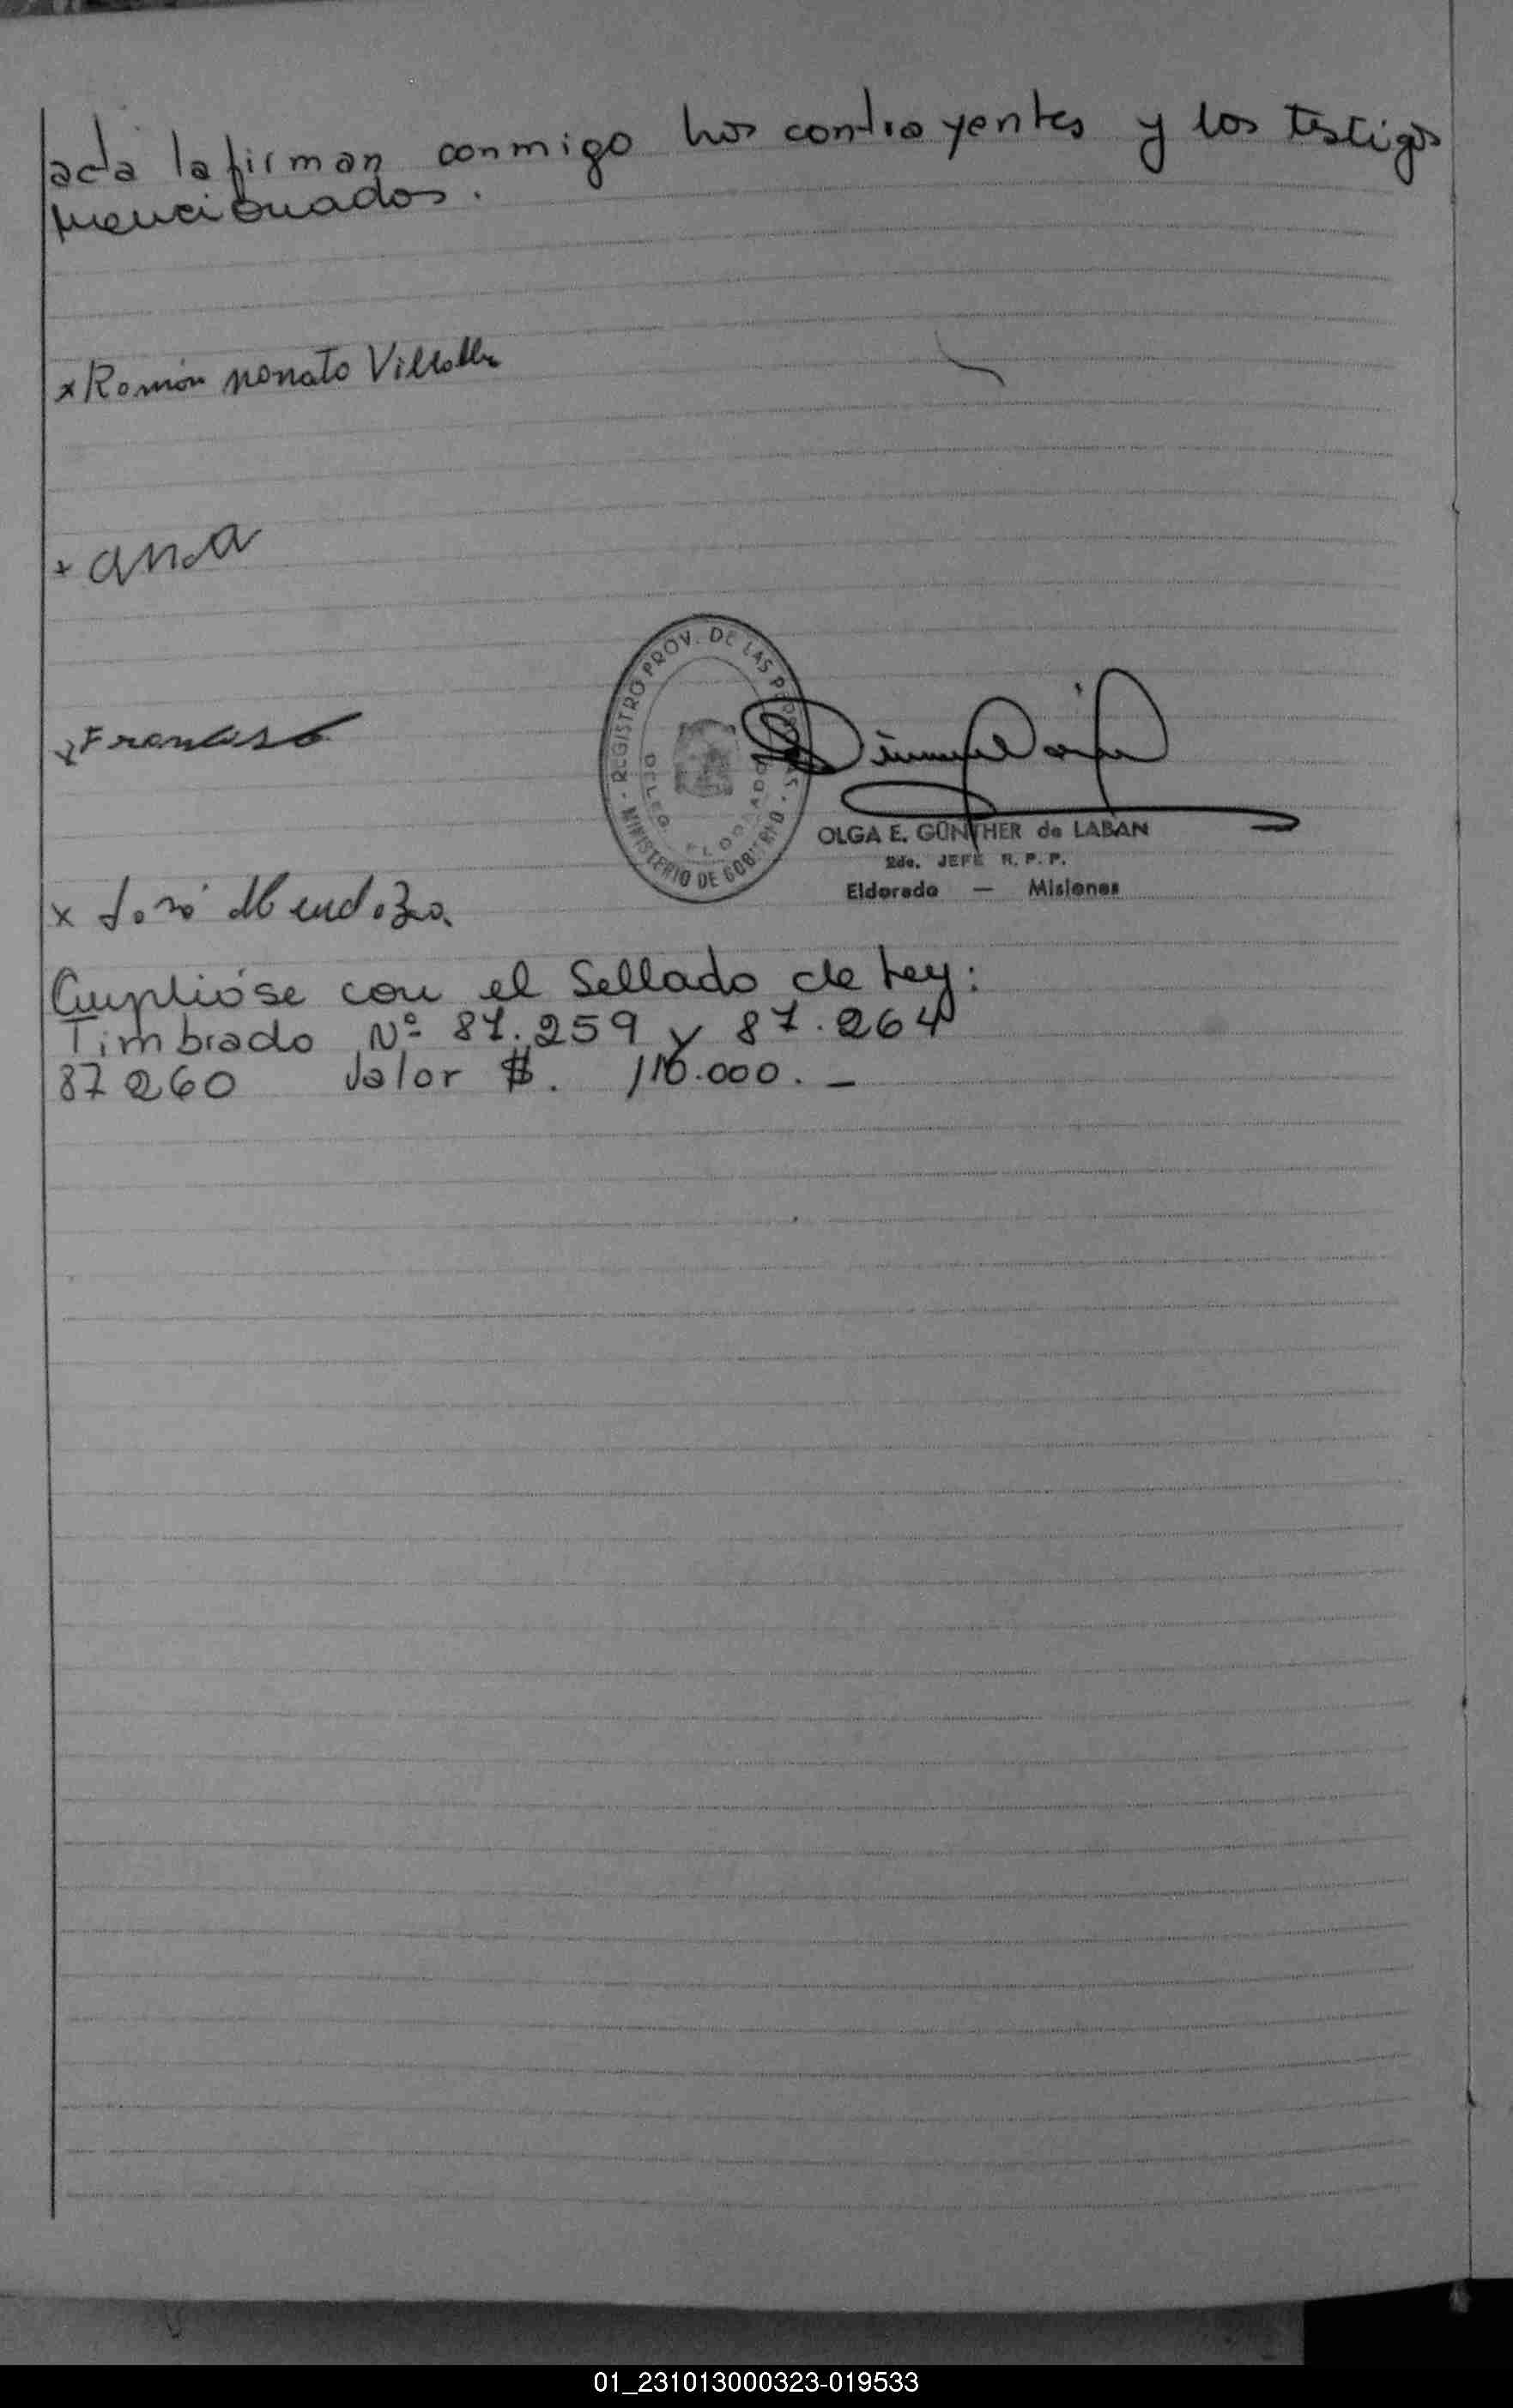 acta la firman conmigo los contrayentes y los testigos
mencionados.
x Ramón nonato Villalba
+ ana
x Francisco
REGISTRO PROV. DE LAS PERSONAS
MINISTERIO DE GOBIERNO
DELEG. ELDORADO
OLGA E. GÜNTHER de LABAN
2do. JEFE R. P. P.
Eldorado — Misiones
x José Mendoza
Cumplióse con el Sellado de Ley:
Timbrado Nº 87.259 y 87.264
87260 Valor $. 116.000. —
01_231013000323-019533